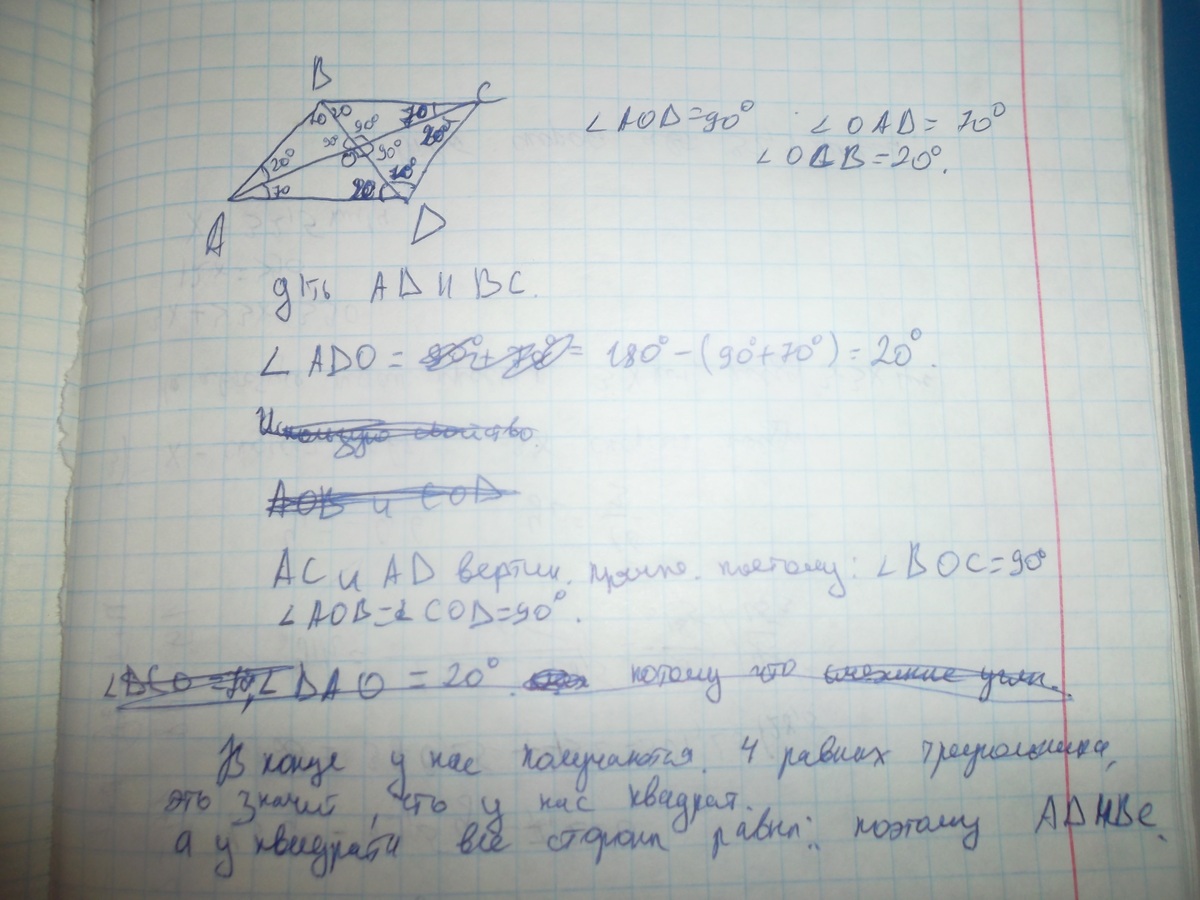 B
C
10 20 90° 70
20°
90° 90°
20° O
70 20 70°
A
D
∠AOD=90° ∠OAD= 70°
∠OCB=20°.
д-ть AD и BC.
∠ADO = 180°-(90°+70°)=20°.
AOB и COD
AC и AD вертик. прямые. поэтому: ∠BOC=90°
∠AOB=∠COD=90°.
∠BCO =70, ∠DAO = 20°. потому что смежные углы.
В конце у нас получаются 4 равных треугольника,
это значит, что у нас квадрат.
а у квадрата все стороны равны: поэтому AD и BC.